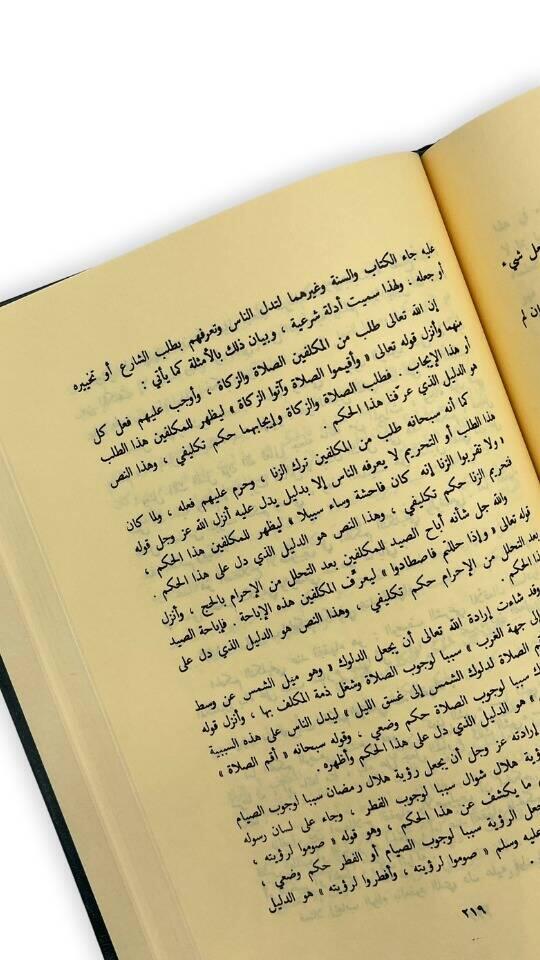 عليه جاء الكتاب والسنة وغيرهما لتدل الناس وتعرفهم بطلب الشارع أو تخييره
أو جعله ، ولهذا سميت أدلة شرعية ، وبيان ذلك بالأمثلة كما يأتي :
إن الله تعالى طلب من المكلفين الصلاة والزكاة ، وأوجب عليهم فعل كل
منهما وأنزل قوله تعالى « وأقيموا الصلاة وآتوا الزكاة » ليظهر للمكلفين هذا الطلب
أو هذا الإيجاب . فطلب الصلاة والزكاة وإيجابهما حكم تكليفي ، وهذا النص
هو الدليل الذي عرّفنا هذا الحكم .
كما أنه سبحانه طلب من المكلفين ترك الزنا ، وحرم عليهم فعله ، ولما كان
هذا الطلب أو التحريم لا يعرفه الناس إلا بدليل يدل عليه أنزل الله عز وجل قوله
« ولا تقربوا الزنا إنه كان فاحشة وساء سبيلا » ليظهر للمكلفين هذا الحكم ،
فتحريم الزنا حكم تكليفي ، وهذا النص هو الدليل الذي دل على هذا الحكم .
والله جل شأنه أباح الصيد للمكلفين بعد التحلل من الإحرام بالحج ، وأنزل
قوله تعالى « وإذا حللتم فاصطادوا » ليعرّف المكلفين هذه الإباحة . فإباحة الصيد
بعد التحلل من الإحرام حكم تكليفي ، وهذا النص هو الدليل الذي دل على
هذا الحكم .
وقد شاءت إرادة الله تعالى أن يجعل الدلوك « وهو ميل الشمس عن وسط
إلى جهة الغرب » سببا لوجوب الصلاة وشغل ذمة المكلف بها ، وأنزل قوله
أقم الصلاة لدلوك الشمس إلى غسق الليل » ليدل الناس على هذه السببية
سببا لوجوب الصلاة حكم وضعي ، وقوله سبحانه « أقم الصلاة »
» هو الدليل الذي دل على هذا الحكم وأظهره .
إرادته عز وجل أن يجعل رؤية هلال رمضان سببا لوجوب الصيام
رؤية هلال شوال سببا لوجوب الفطر ، وجاء على لسان رسوله
ما يكشف عن هذا الحكم ، وهو قوله « صوموا لرؤيته ،
جعل الرؤية سببا لوجوب الصيام أو الفطر حكم وضعي ،
عليه وسلم « صوموا لرؤيته ، وأفطروا لرؤيته » هو الدليل
٢١٩
عل شيء
ان لم